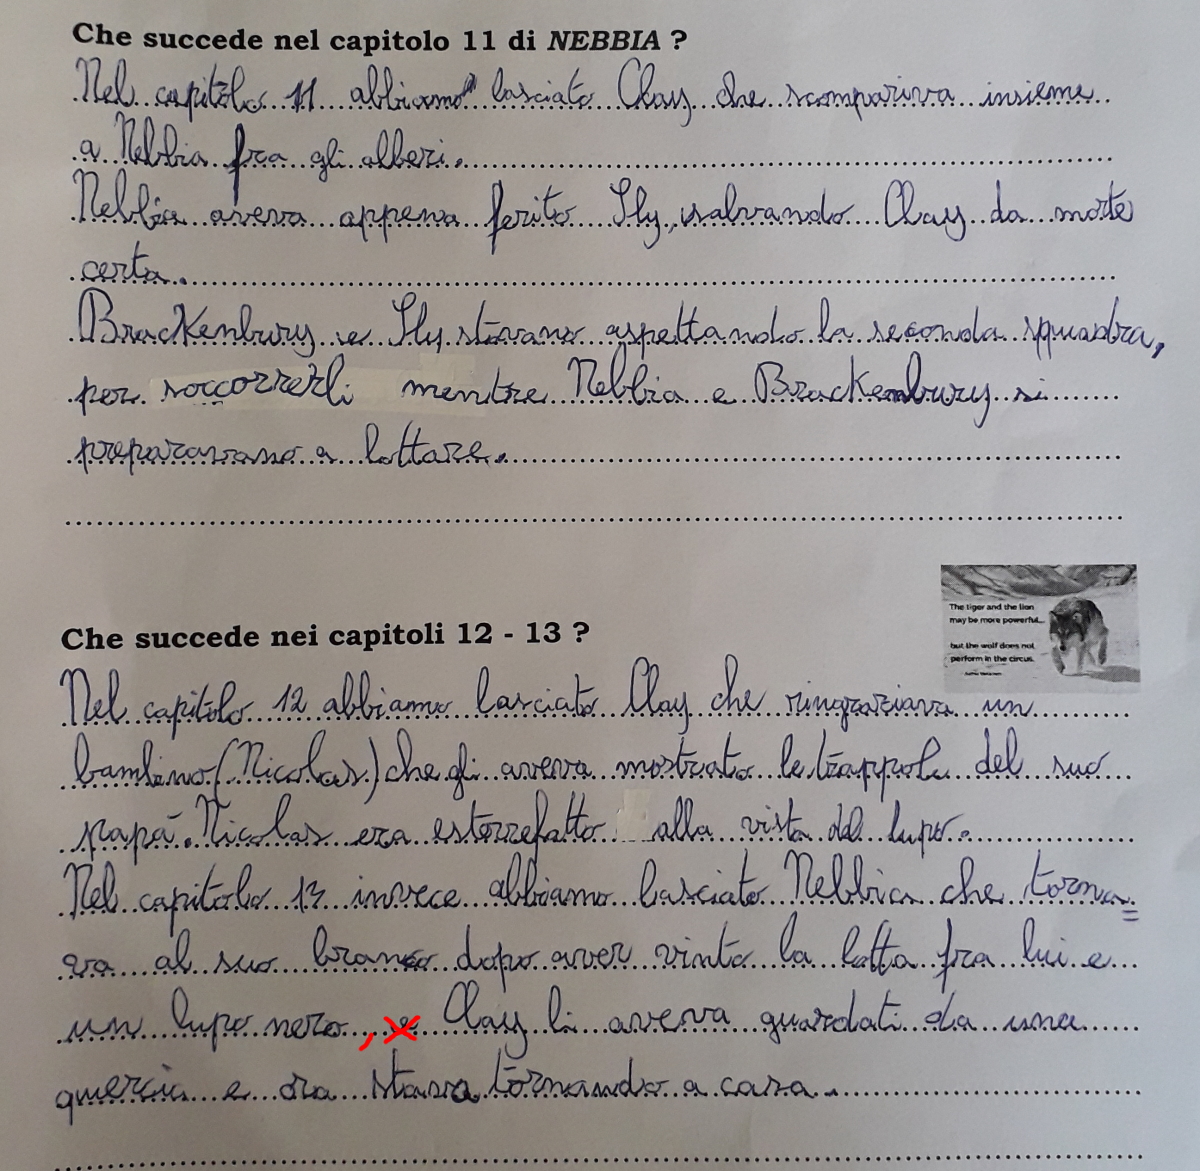 Che succede nel capitolo 11 di NEBBIA ?
Nel capitolo 11 abbiamo lasciato Clay che scompariva insieme
a Nebbia fra gli alberi.
Nebbia aveva appena ferito Sly, salvando Clay da morte
certa.
BracKenbury e Sly stavano aspettando la seconda squadra,
per soccorrerli mentre Nebbia e BracKenbury si
preparavano a lottare.
The tiger and the lion
may be more powerful...
but the wolf does not
perform in the circus.
Che succede nei capitoli 12 - 13 ?
Nel capitolo 12 abbiamo lasciato Clay che ringraziava un
bambino (Nicolas) che gli aveva mostrato le trappole del suo
papà. Nicolas era esterrefatto alla vista del lupo.
Nel capitolo 13 invece abbiamo lasciato Nebbia che torna=
va al suo branco dopo aver vinto la lotta fra lui e
un lupo nero, e Clay li aveva guardati da una
quercia e ora stava tornando a casa.